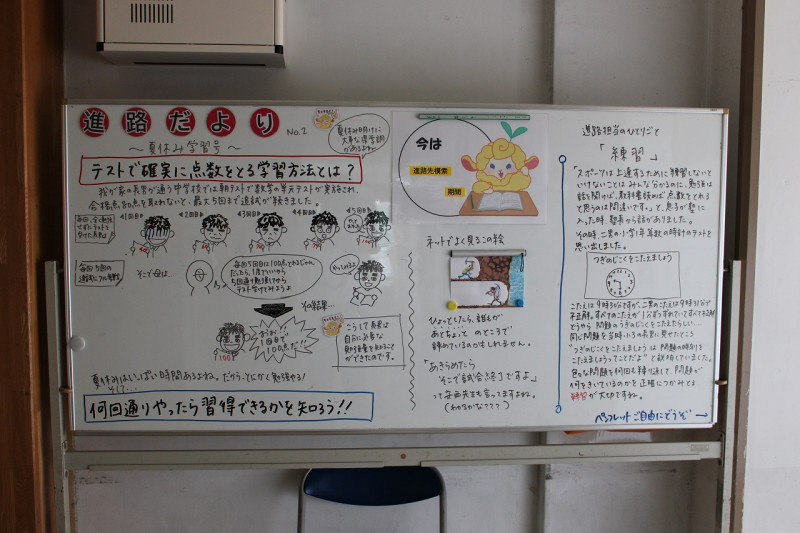 進路だより
No.2
～夏休み学習号～
夏休み明けに
大事な
あるよね。
テストで確実に点数をとる学習方法とは？
我が家の長男が通う中学校では朝テストで数学の単元テストが実施され、
合格点80点を取れないと、最大5回まで追試が続きました。
1回目
2回目
3回目
4回目
5回目
100
そこで母は…
毎回5回目は100点とれるじゃん
だったら、1度でいいから
5回通り勉強してから
テスト受けてみようよ
その結果…
おぉ!
1回目で
100点だ!!
100
こうして長男は
自分に必要な
勉強量を知ること
ができたのです。
夏休みはいっぱい時間あるよね。だから、とにかく勉強やる!
何回通りやったら習得できるかを知ろう!!
今は
進路先模索
期間
ネットでよく見るこの絵
ひょっとしたら、誰もが
あとちょっと のところで
諦めているのかもしれません。
「あきらめたら
そこで試合終了ですよ」
って安西先生も言ってますよね。
(わかるかな？？？)
進路担当のひとりごと
「練習」
「スポーツは上達するために練習しないと
いけないことはみんな分かるのに、勉強は
話を聞けば、教科書読めば点数をとれると
思うのは間違いです。」と、息子が塾に
入った時、塾長から話がありました。
その時、二男の小学1年算数の時計のテストを
思い出しました。
つぎのじこくをこたえましょう
こたえは9時30分ですが、二男のこたえは9時31分で
不正解。すべてのこたえが1分ずつずれていてすべて不正解
どうやら問題のつぎのじこくをこたえたらしい…
同じ問題を当時小5の長男に見せたところ
"つぎのじこくをこたえましょう"は問題の時刻を
こたえましょうってことだよ"と説明していました。
色々な問題を何回も練習して、問題が
何をきいているのかを正確につかみとる
練習が大切ですね。
パンフレットご自由にどうぞ→